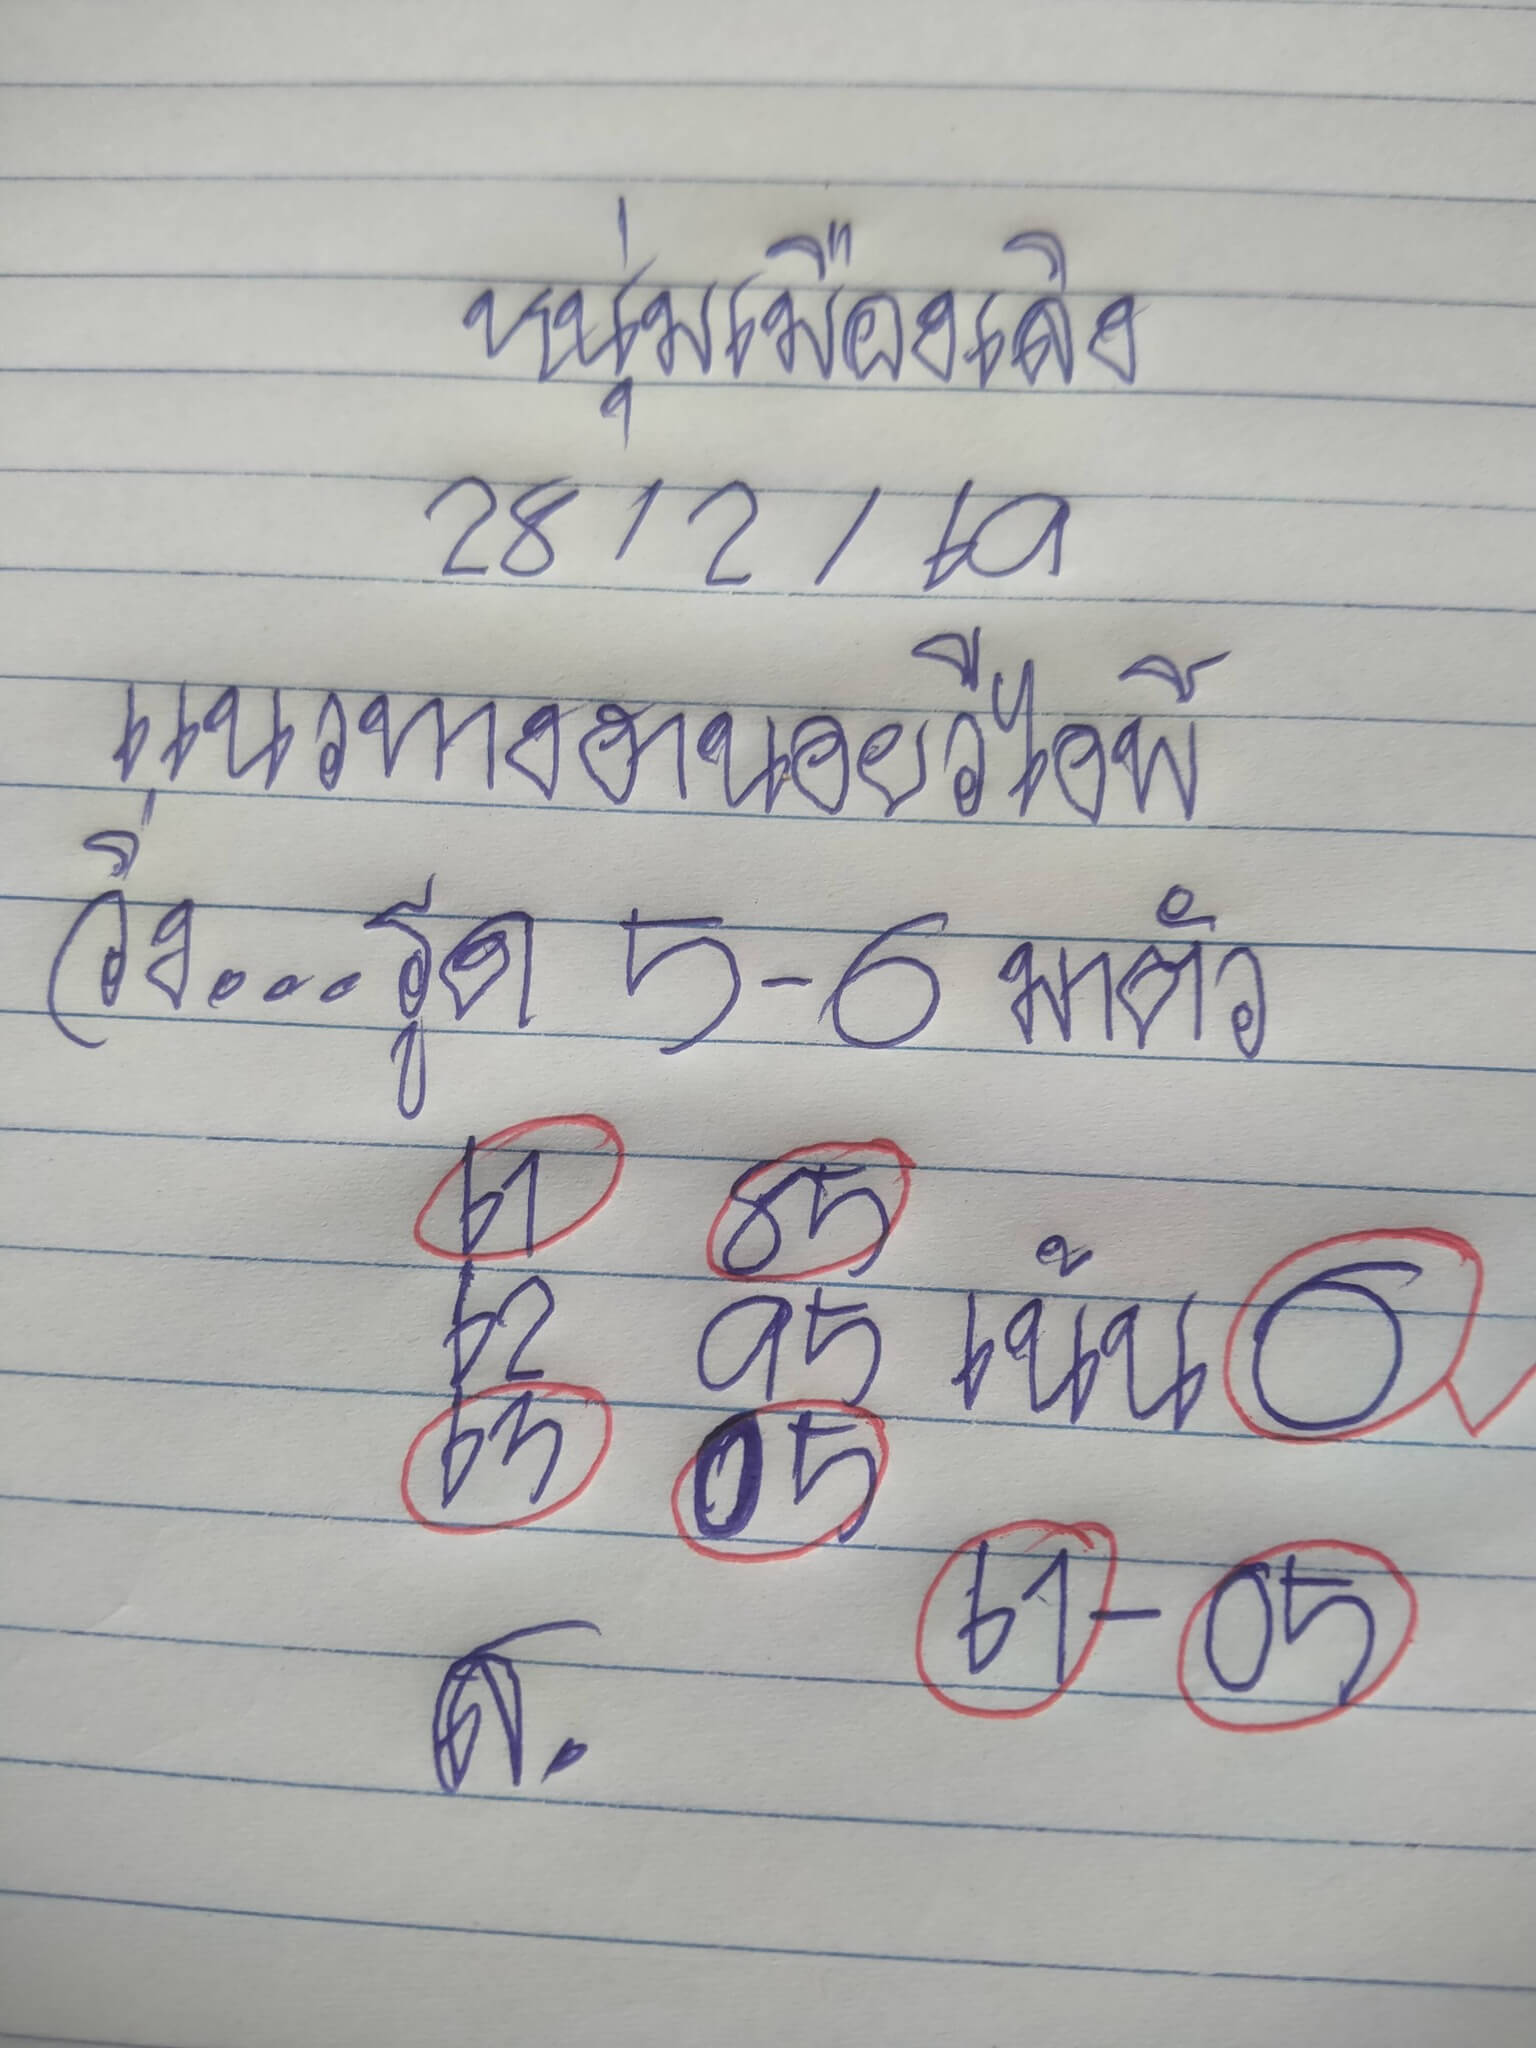 หนุ่มเมืองเลิง
28 / 2 / 69
แนวทางฮานอยวีไอพี
วิ่ง...รูด 5-6 มาตัว
61 85
62 95 เน้น 6
63 05
61-05
ส.